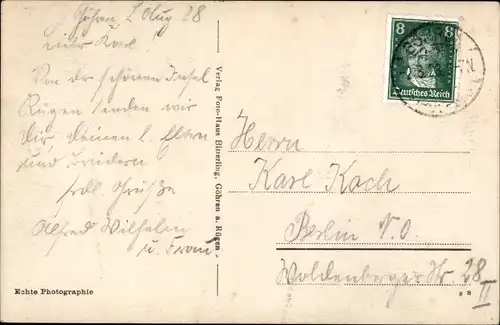 Göhren 2 Aug 28
Lieber Karl!
Von der schönen Insel
Rügen senden wir
Dir, Deinen l. Eltern
und Brüdern
frdl. Grüße
Alfred Wilhelm
u. Frau
Verlag Foto-Haus Bitterling, Göhren a. Rügen
8 8
Deutsches Reich
Herrn
Karl Koch
Berlin N.O.
Woldenberger Str. 28
II
Echte Photographie